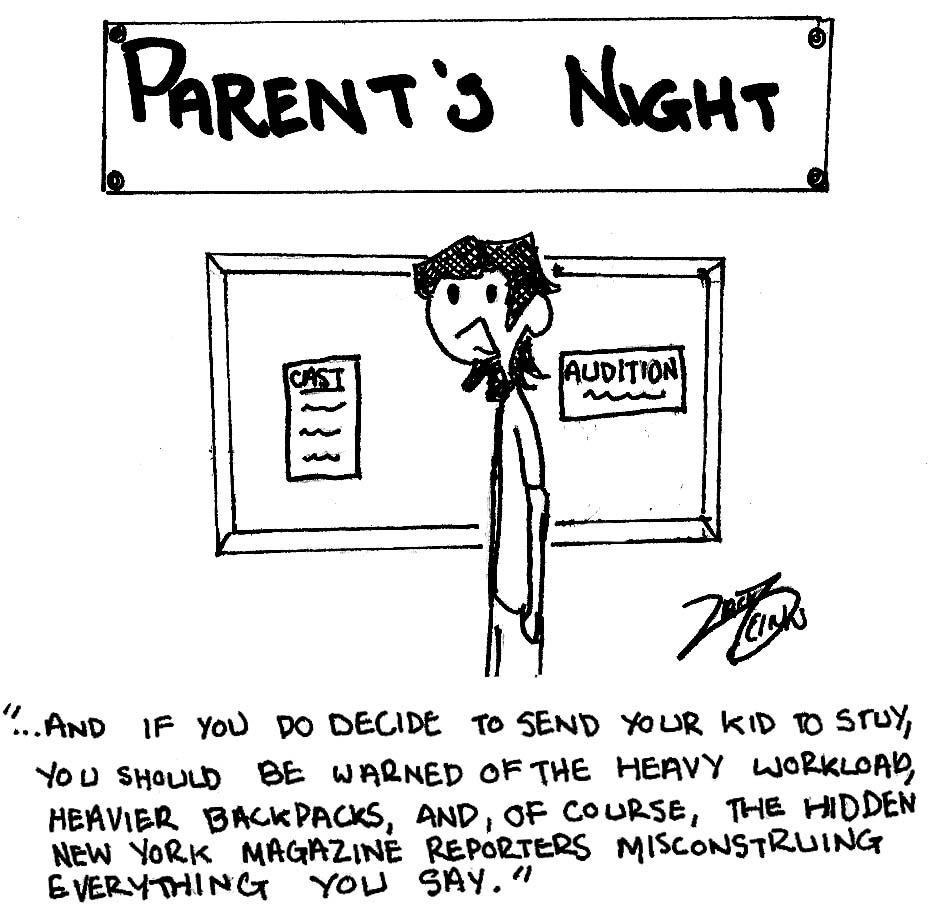 PARENT'S NIGHT
CAST
AUDITION
"...AND IF YOU DO DECIDE TO SEND YOUR KID TO STUY,
YOU SHOULD BE WARNED OF THE HEAVY WORKLOAD,
HEAVIER BACKPACKS, AND, OF COURSE, THE HIDDEN
NEW YORK MAGAZINE REPORTERS MISCONSTRUING
EVERYTHING YOU SAY."